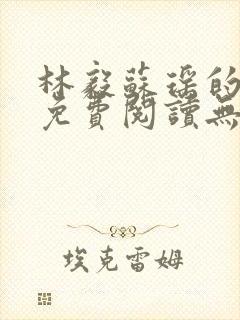 林毅蘇瑶的
免費閱讀無
埃克雷姆